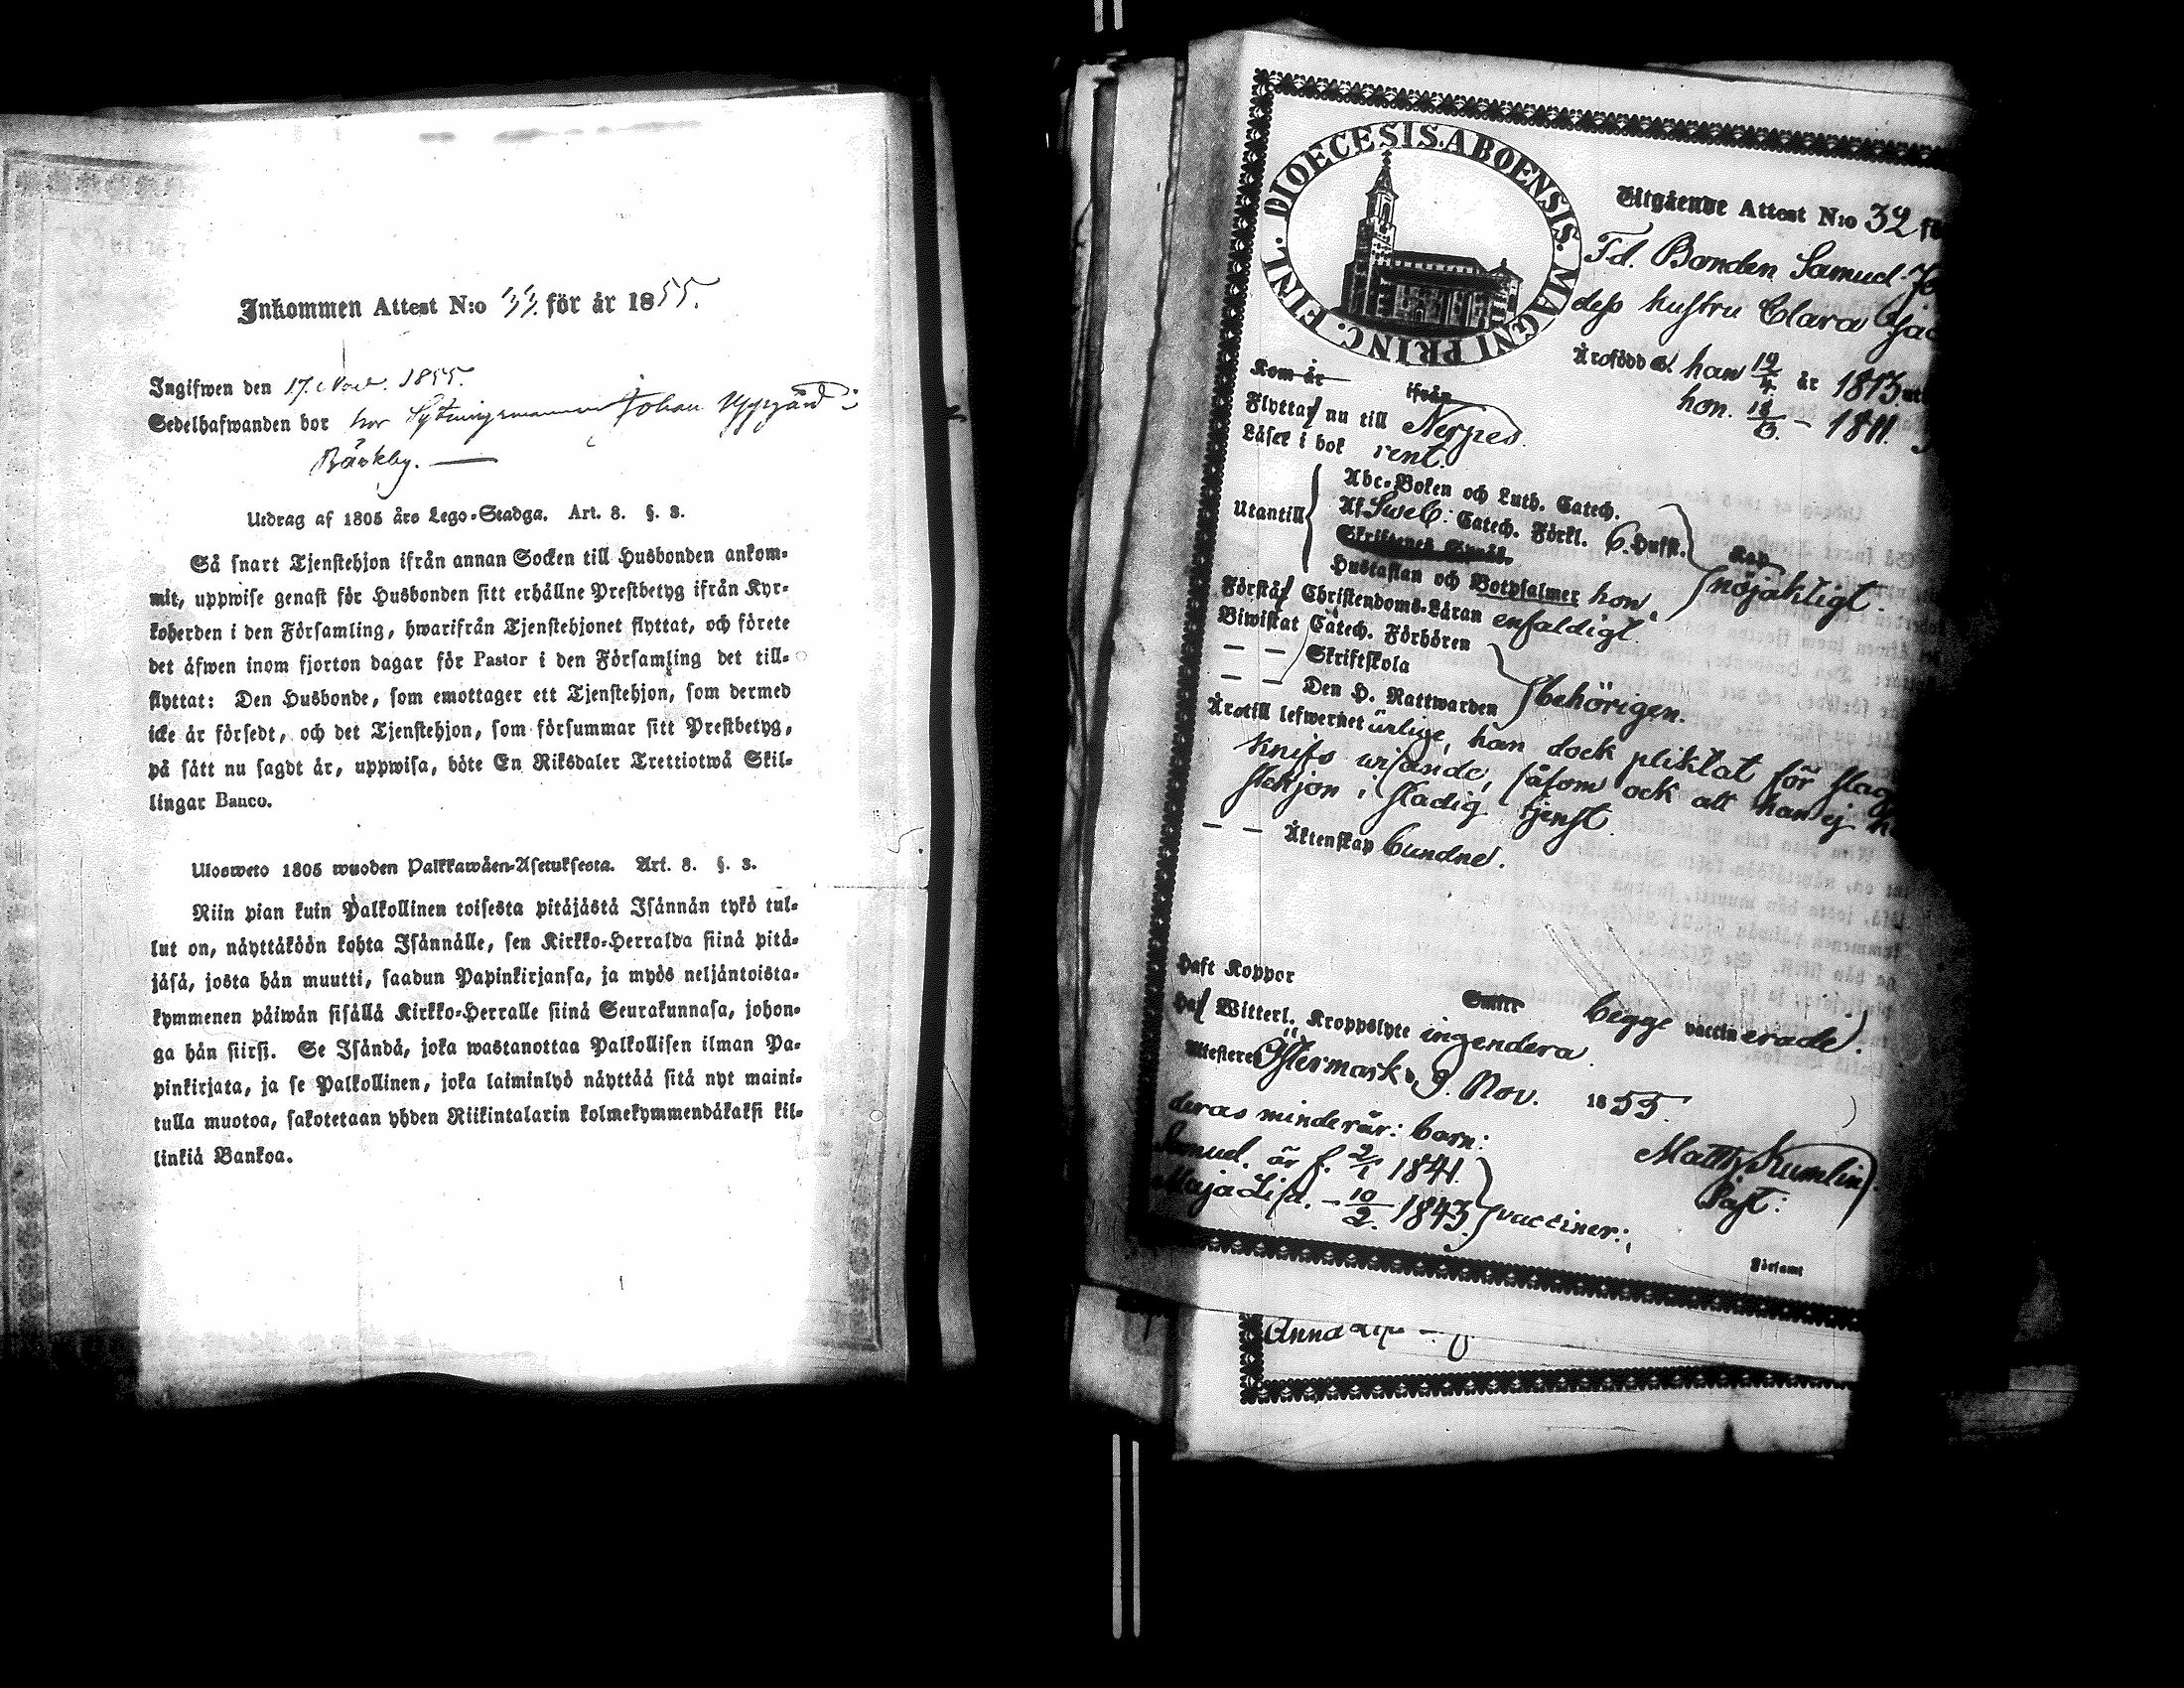 Inkommen Attest N:o 33. för år 1855.
Ingifwen den 17. Nov. 1855.
Sedelhafwanden bor hos Sytningsmannen Johan Uppgård i
Bäckby.
Utdrag af 1805 års Lego-Stadga. Art. 8. §. 3.
Så snart Tjenstehjon ifrån annan Socken till Husbonden ankom-
mit, uppwise genast för Husbonden sitt erhållne Prestbetyg ifrån Kyr-
koherden i den Församling, hwarifrån Tjenstehjonet flyttat, och förete
det äfwen inom fjorton dagar för Pastor i den Församling det till-
flyttat: Den Husbonde, som emottager ett Tjenstehjon, som dermed
icke är försedt, och det Tjenstehjon, som försummar sitt Prestbetyg,
på sätt nu sagdt är, uppwisa, böte En Riksdaler Trettiotwå Skil-
lingar Banco.
Ulosweto 1805 wuoden Palkkawäen-Asetuksesta. Art. 8. §. 3.
Niin pian kuin Palkollinen toisesta pitäjästä Isännän tykö tul-
lut on, näyttäköön kohta Isännälle, sen Kirkko-Herralda siinä pitä-
jäsä, josta hän muutti, saadun Papinkirjansa, ja myös neljäntoista-
kymmenen päiwän sisällä Kirkko-Herralle siinä Seurakunnasa, johon-
ga hän siirsi. Se Isändä, joka wastanottaa Palkollisen ilman Pa-
pinkirjata, ja se Palkollinen, joka laiminlyö näyttää sitä nyt maini-
tulla muotoa, sakotetaan yhden Riikintalarin kolmekymmendäkaksi kil-
linkiä Bankoa.
DIOECESIS. ABOENSIS. MAGNI PRINC. FINL.
Utgående Attest N:o 32 fö
Fd. Bonden Samuel
dess hustru Clara
Äro födde han 19/4 år 1813
hon. 18/3 - 1811.
Kom år ifrån
Flyttar nu till Nerpes.
Läser i bok rent.
Utantill Abc-Boken och Luth. Catech.
Af Sweb: Catech. Förkl. 6. Hufst.
Hustaflan och Botpsalmer hon, nöjaktigt.
Förstår Christendoms-Läran enfaldigt.
Biwistat Catech. Förhören
— — Skriftskola
— — Den H. Nattwarden behörigen.
Äro till lefwernet ärlige, han dock pliktat för slag
knifs wisande, såsom ock att han ej
stehjon i stadig tjenst.
— — Äktenskap bundne.
Haft Koppor begge vaccinerade.
Haf Witterl. Kroppslyte ingendera.
Attesteres Östermark d. 9. Nov. 1855.
deras minderår: barn:
Samuel. är f. 2/1 1841.
Maja Lisa. — 10/2. 1843. vacciner:
Matth. Kumlin.
Past:
Församl
Anna